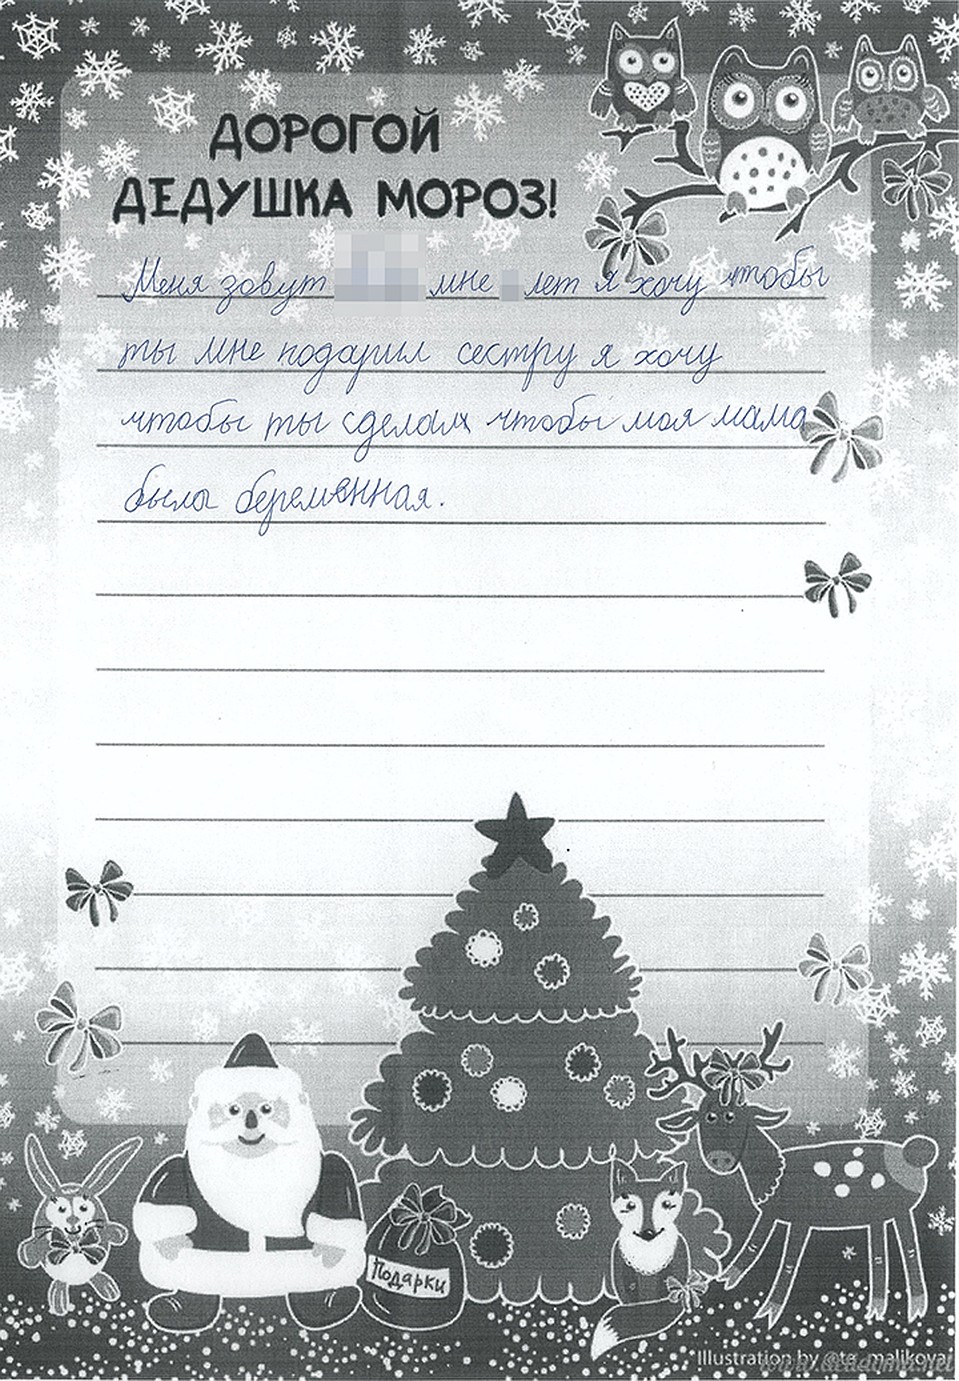 ДОРОГОЙ
ДЕДУШКА МОРОЗ!
Меня зовут мне лет я хочу чтобы
ты мне подарил сестру я хочу
чтобы ты сделал чтобы моя мама
была беременная.
Подарки
Illustration by @ta_malikova